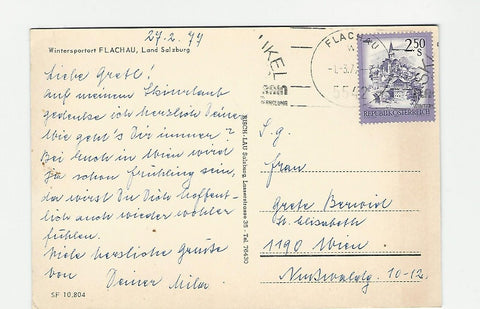 27.2.77
Wintersportort FLACHAU, Land Salzburg
Liebe Gretl!
Auf meinem Skiurlaub
gedenke ich herzlich Deiner
Wie geht's Dir immer?
Bei Euch in Wien wird
ja schon Frühling sein,
da wirst Du Dich hoffent-
lich auch wieder wohler
fühlen.
Viele herzliche Grüße
von Deiner Mila
SF 10.804
KIRCH-LAU Salzburg, Lasserstrasse 35 - Tel. 76430
FLACHAU
-1.-3.77
554
2.50
S
REPUBLIK ÖSTERREICH
S.g.
Frau
Grete Berwid
St. Elisabeth
1190 Wien
Nußwaldg. 10-12.